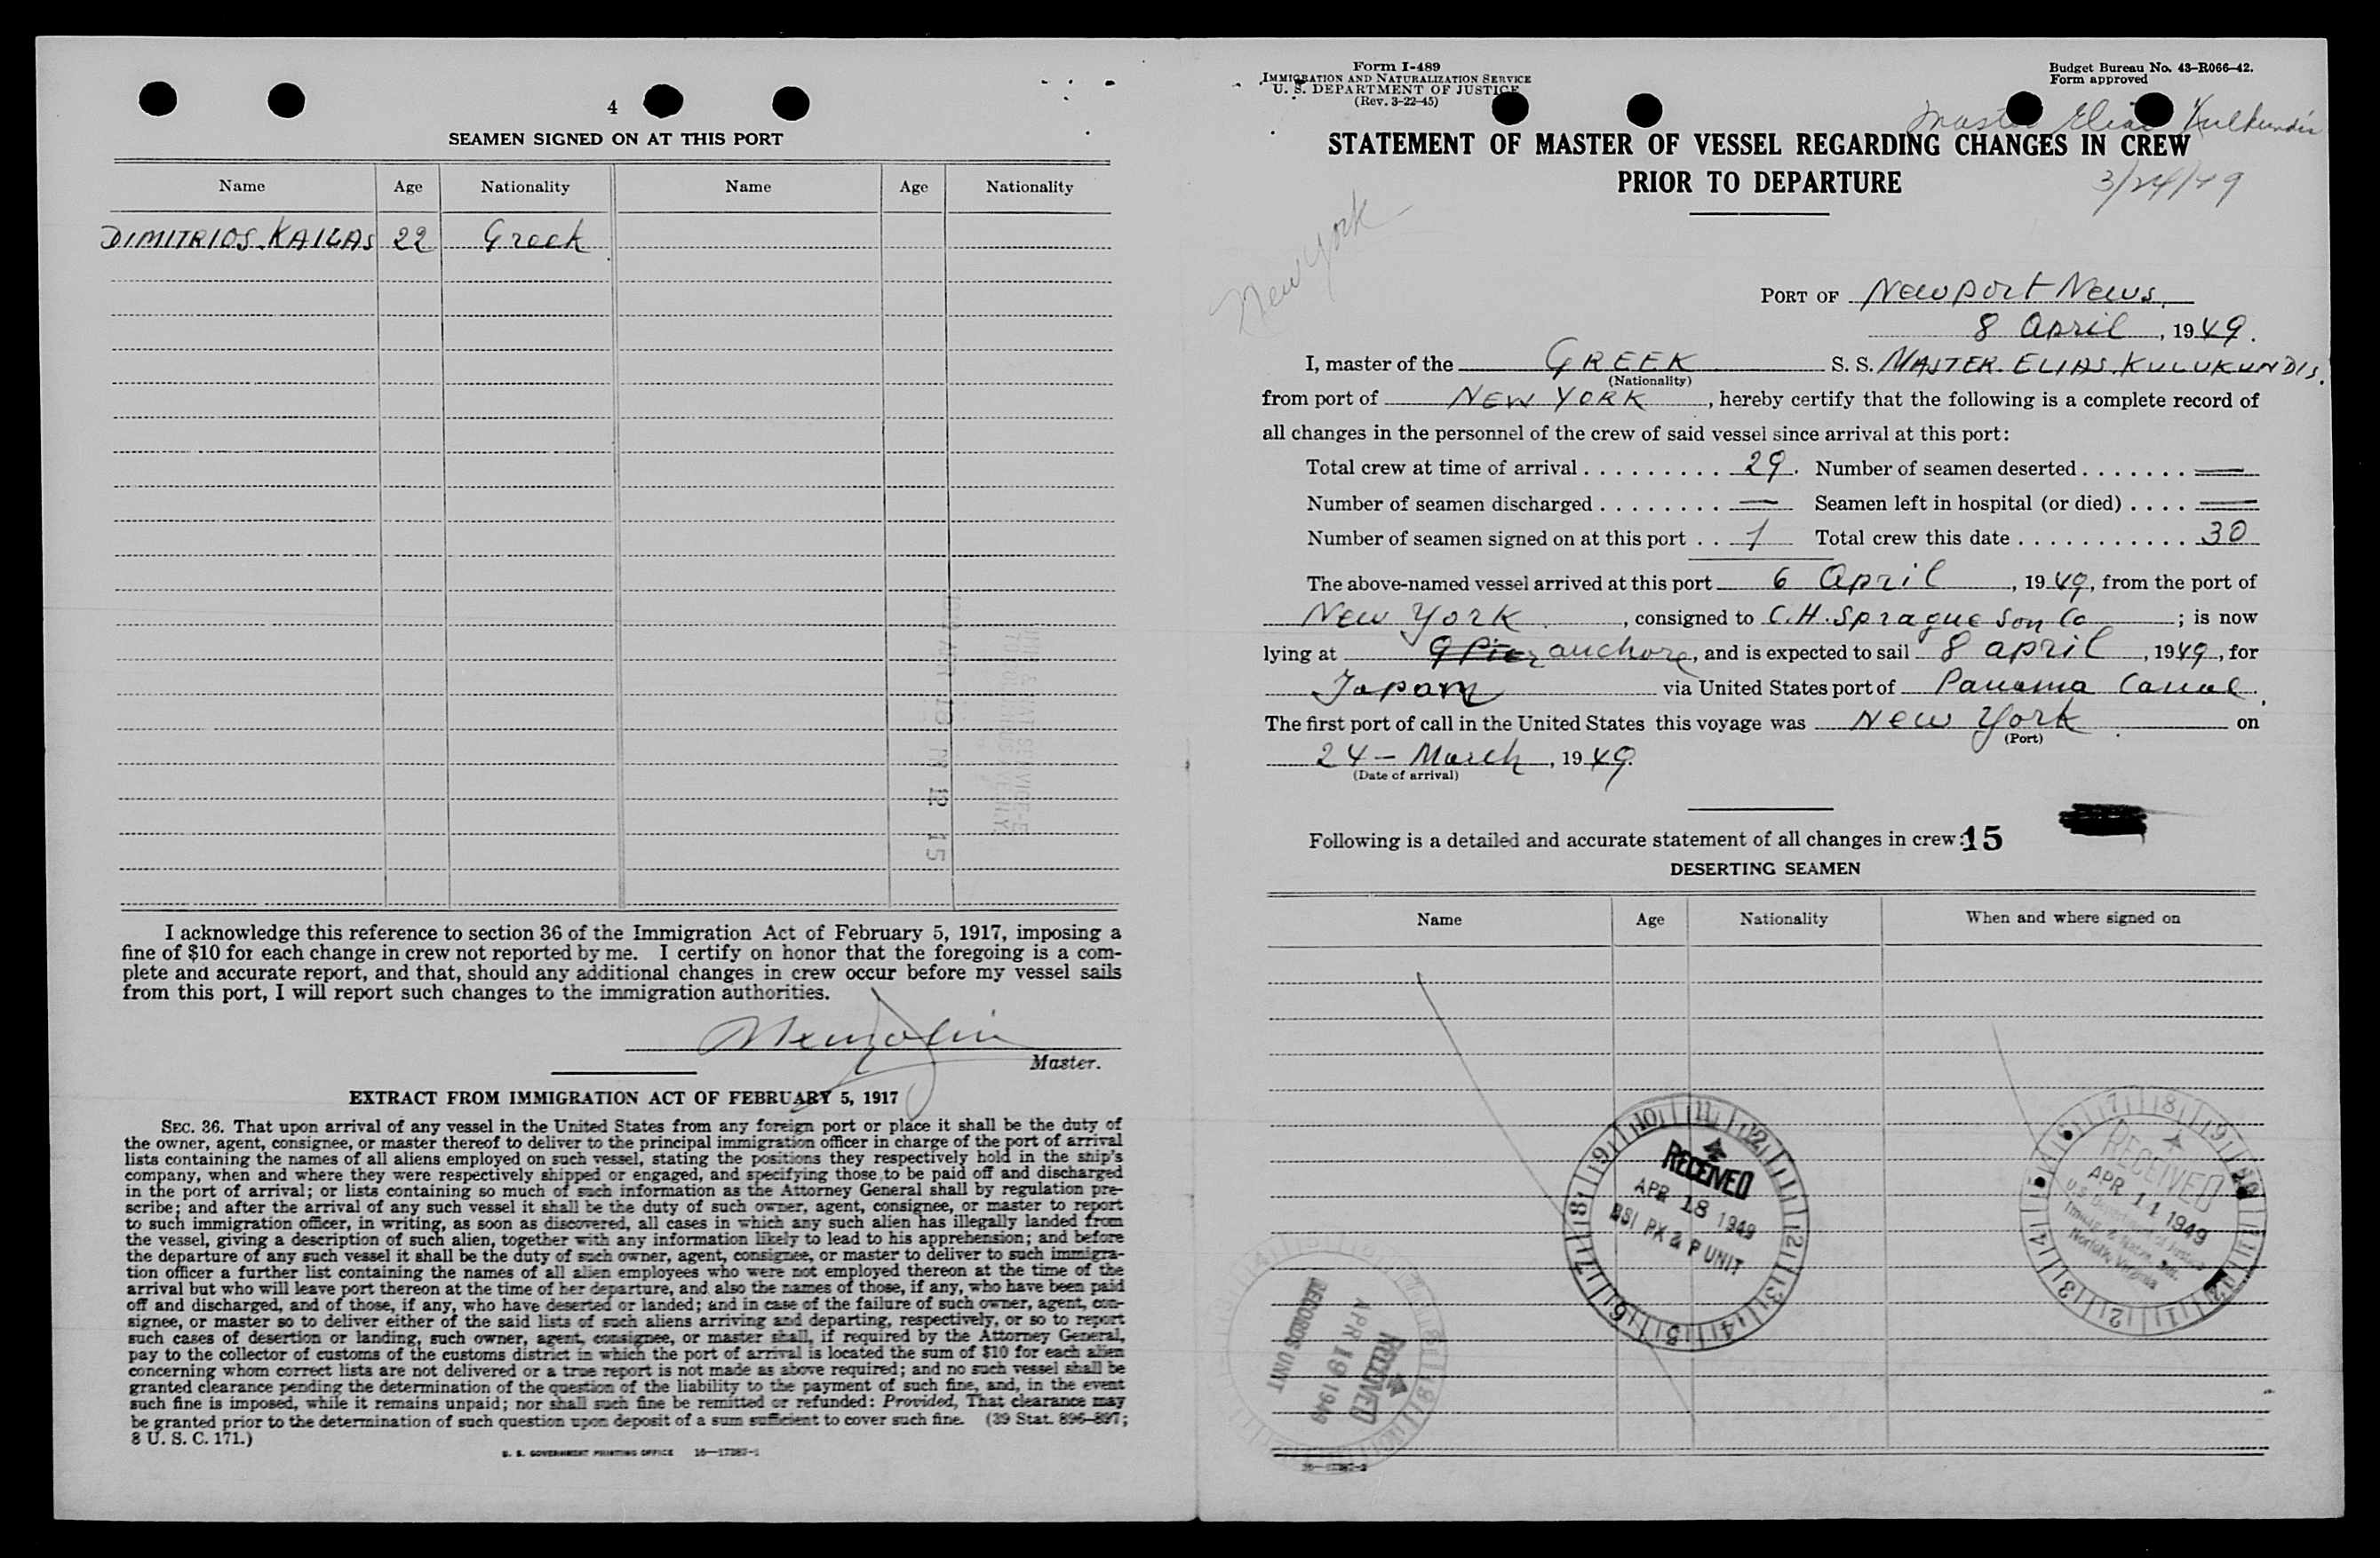 4
SEAMEN SIGNED ON AT THIS PORT
Name Age Nationality Name Age Nationality
DIMITRIOS KAILAS 22 Greek
I acknowledge this reference to section 36 of the Immigration Act of February 5, 1917, imposing a
fine of $10 for each change in crew not reported by me. I certify on honor that the foregoing is a com-
plete and accurate report, and that, should any additional changes in crew occur before my vessel sails
from this port, I will report such changes to the immigration authorities.
Master.
EXTRACT FROM IMMIGRATION ACT OF FEBRUARY 5, 1917
SEC. 36. That upon arrival of any vessel in the United States from any foreign port or place it shall be the duty of
the owner, agent, consignee, or master thereof to deliver to the principal immigration officer in charge of the port of arrival
lists containing the names of all aliens employed on such vessel, stating the positions they respectively hold in the ship's
company, when and where they were respectively shipped or engaged, and specifying those to be paid off and discharged
in the port of arrival; or lists containing so much of such information as the Attorney General shall by regulation pre-
scribe; and after the arrival of any such vessel it shall be the duty of such owner, agent, consignee, or master to report
to such immigration officer, in writing, as soon as discovered, all cases in which any such alien has illegally landed from
the vessel, giving a description of such alien, together with any information likely to lead to his apprehension; and before
the departure of any such vessel it shall be the duty of such owner, agent, consignee, or master to deliver to such immigra-
tion officer a further list containing the names of all alien employees who were not employed thereon at the time of the
arrival but who will leave port thereon at the time of her departure, and also the names of those, if any, who have been paid
off and discharged, and of those, if any, who have deserted or landed; and in case of the failure of such owner, agent, con-
signee, or master so to deliver either of the said lists of such aliens arriving and departing, respectively, or so to report
such cases of desertion or landing, such owner, agent, consignee, or master shall, if required by the Attorney General,
pay to the collector of customs of the customs district in which the port of arrival is located the sum of $10 for each alien
concerning whom correct lists are not delivered or a true report is not made as above required; and no such vessel shall be
granted clearance pending the determination of the question of the liability to the payment of such fine, and, in the event
such fine is imposed, while it remains unpaid; nor shall such fine be remitted or refunded: Provided, That clearance may
be granted prior to the determination of such question upon deposit of a sum sufficient to cover such fine. (39 Stat. 896-897;
8 U. S. C. 171.)
U. S. GOVERNMENT PRINTING OFFICE 16—17387-1
Form I-489
IMMIGRATION AND NATURALIZATION SERVICE
U. S. DEPARTMENT OF JUSTICE
(Rev. 3-22-45)
Budget Bureau No. 43-R066-42.
Form approved
Master Elias Kulkundis
3/24/49
STATEMENT OF MASTER OF VESSEL REGARDING CHANGES IN CREW
PRIOR TO DEPARTURE
New York
PORT OF Newport News.
8 April, 1949.
I, master of the GREEK S. S. MASTER ELIAS KULUKUNDIS.
(Nationality)
from port of NEW YORK, hereby certify that the following is a complete record of
all changes in the personnel of the crew of said vessel since arrival at this port:
Total crew at time of arrival . . . . . . . . . 29. Number of seamen deserted . . . . . . . —
Number of seamen discharged . . . . . . . . — Seamen left in hospital (or died) . . . . —
Number of seamen signed on at this port . . 1 Total crew this date . . . . . . . . . . . . 30
The above-named vessel arrived at this port 6 April, 1949, from the port of
New York, consigned to C.H. Sprague Son Co; is now
lying at 9 Pier anchore, and is expected to sail 8 april, 1949, for
Japan via United States port of Panama Canal.
The first port of call in the United States this voyage was New York on
(Port)
24 – March, 1949.
(Date of arrival)
Following is a detailed and accurate statement of all changes in crew: 15
DESERTING SEAMEN
Name Age Nationality When and where signed on
RECEIVED
APR 18 1949
BSI PX & P UNIT
RECEIVED
APR 11 1949
U S Department of Justice
Immig. & Natzn. Ser.
Norfolk, Virginia
RECEIVED
APR 19 1949
RECORDS UNIT
16—17387-2